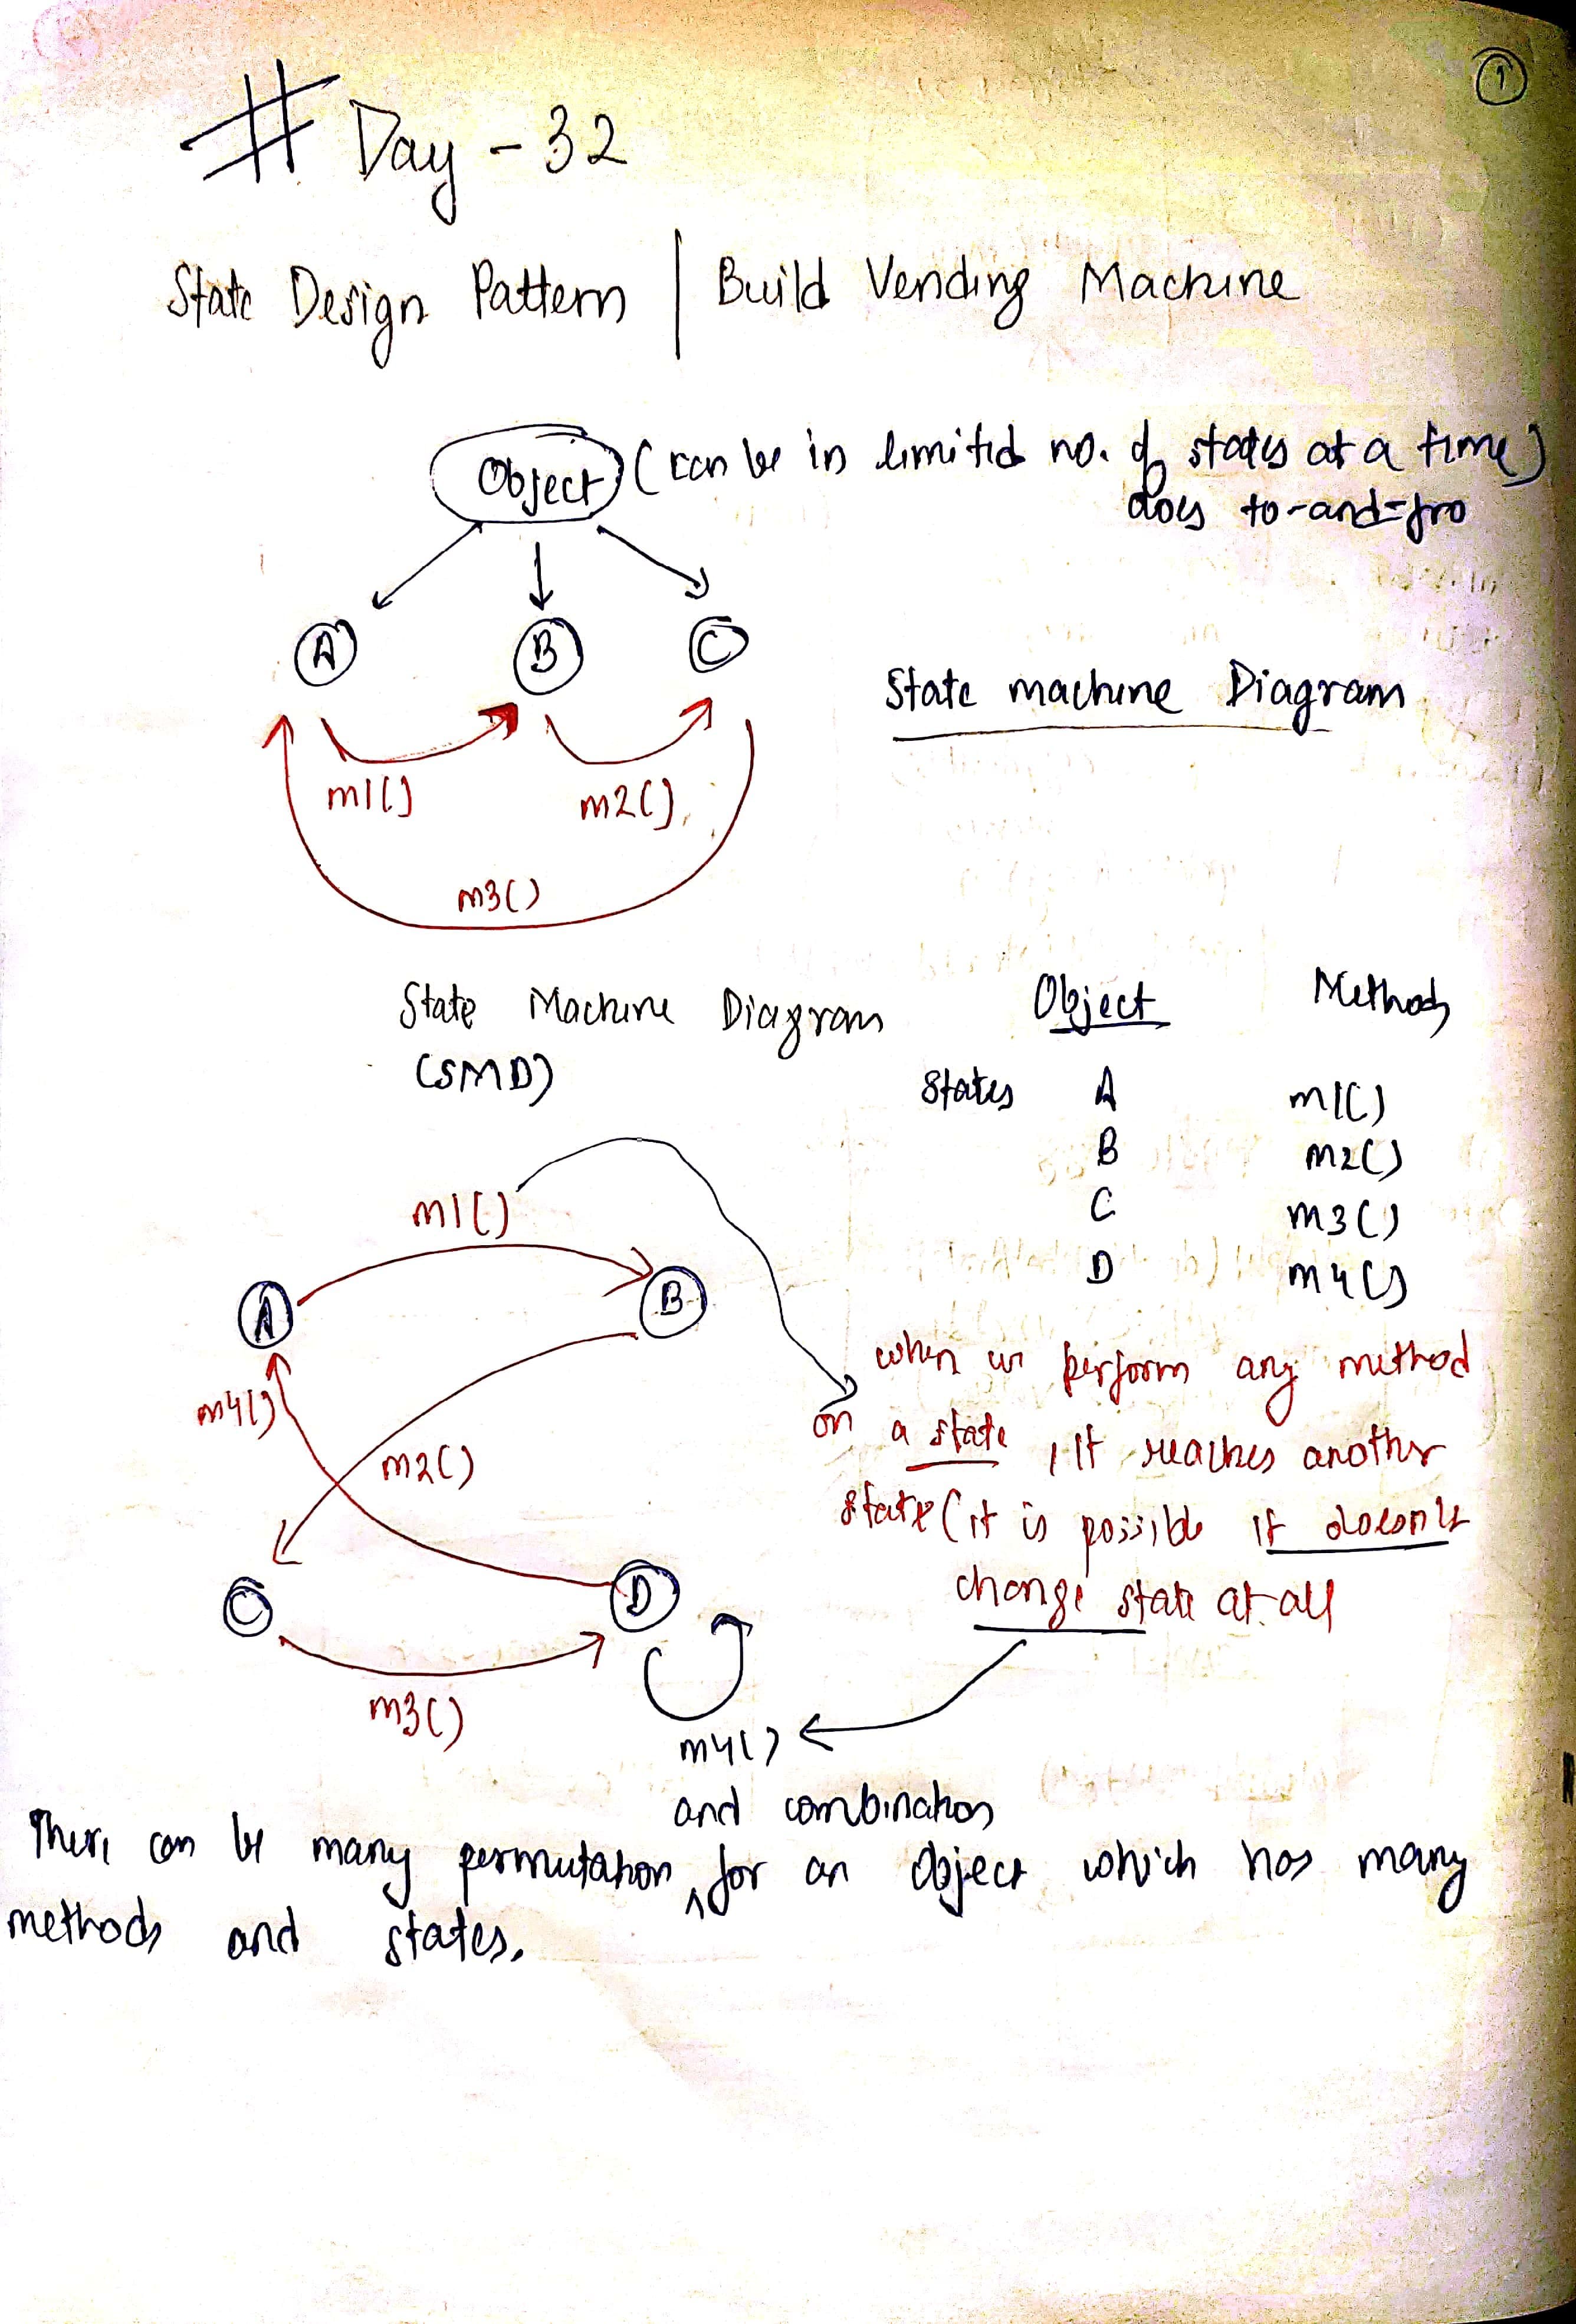 1
# Day - 32
State Design Pattern | Build Vending Machine
Object (can be in limited no. of states at a time)
does to-and-fro
A B C
State machine Diagram
m1() m2()
m3()
State Machine Diagram
(SMD)
Object Methods
States A m1()
B m2()
C m3()
D m4()
m1()
A B
m4()
m2()
C D
m3()
m4()
when we perform any method
on a state, it reaches another
state (it is possible it doesn't
change state at all
and combination
There can be many permutation ^ for an object which has many
methods and states.